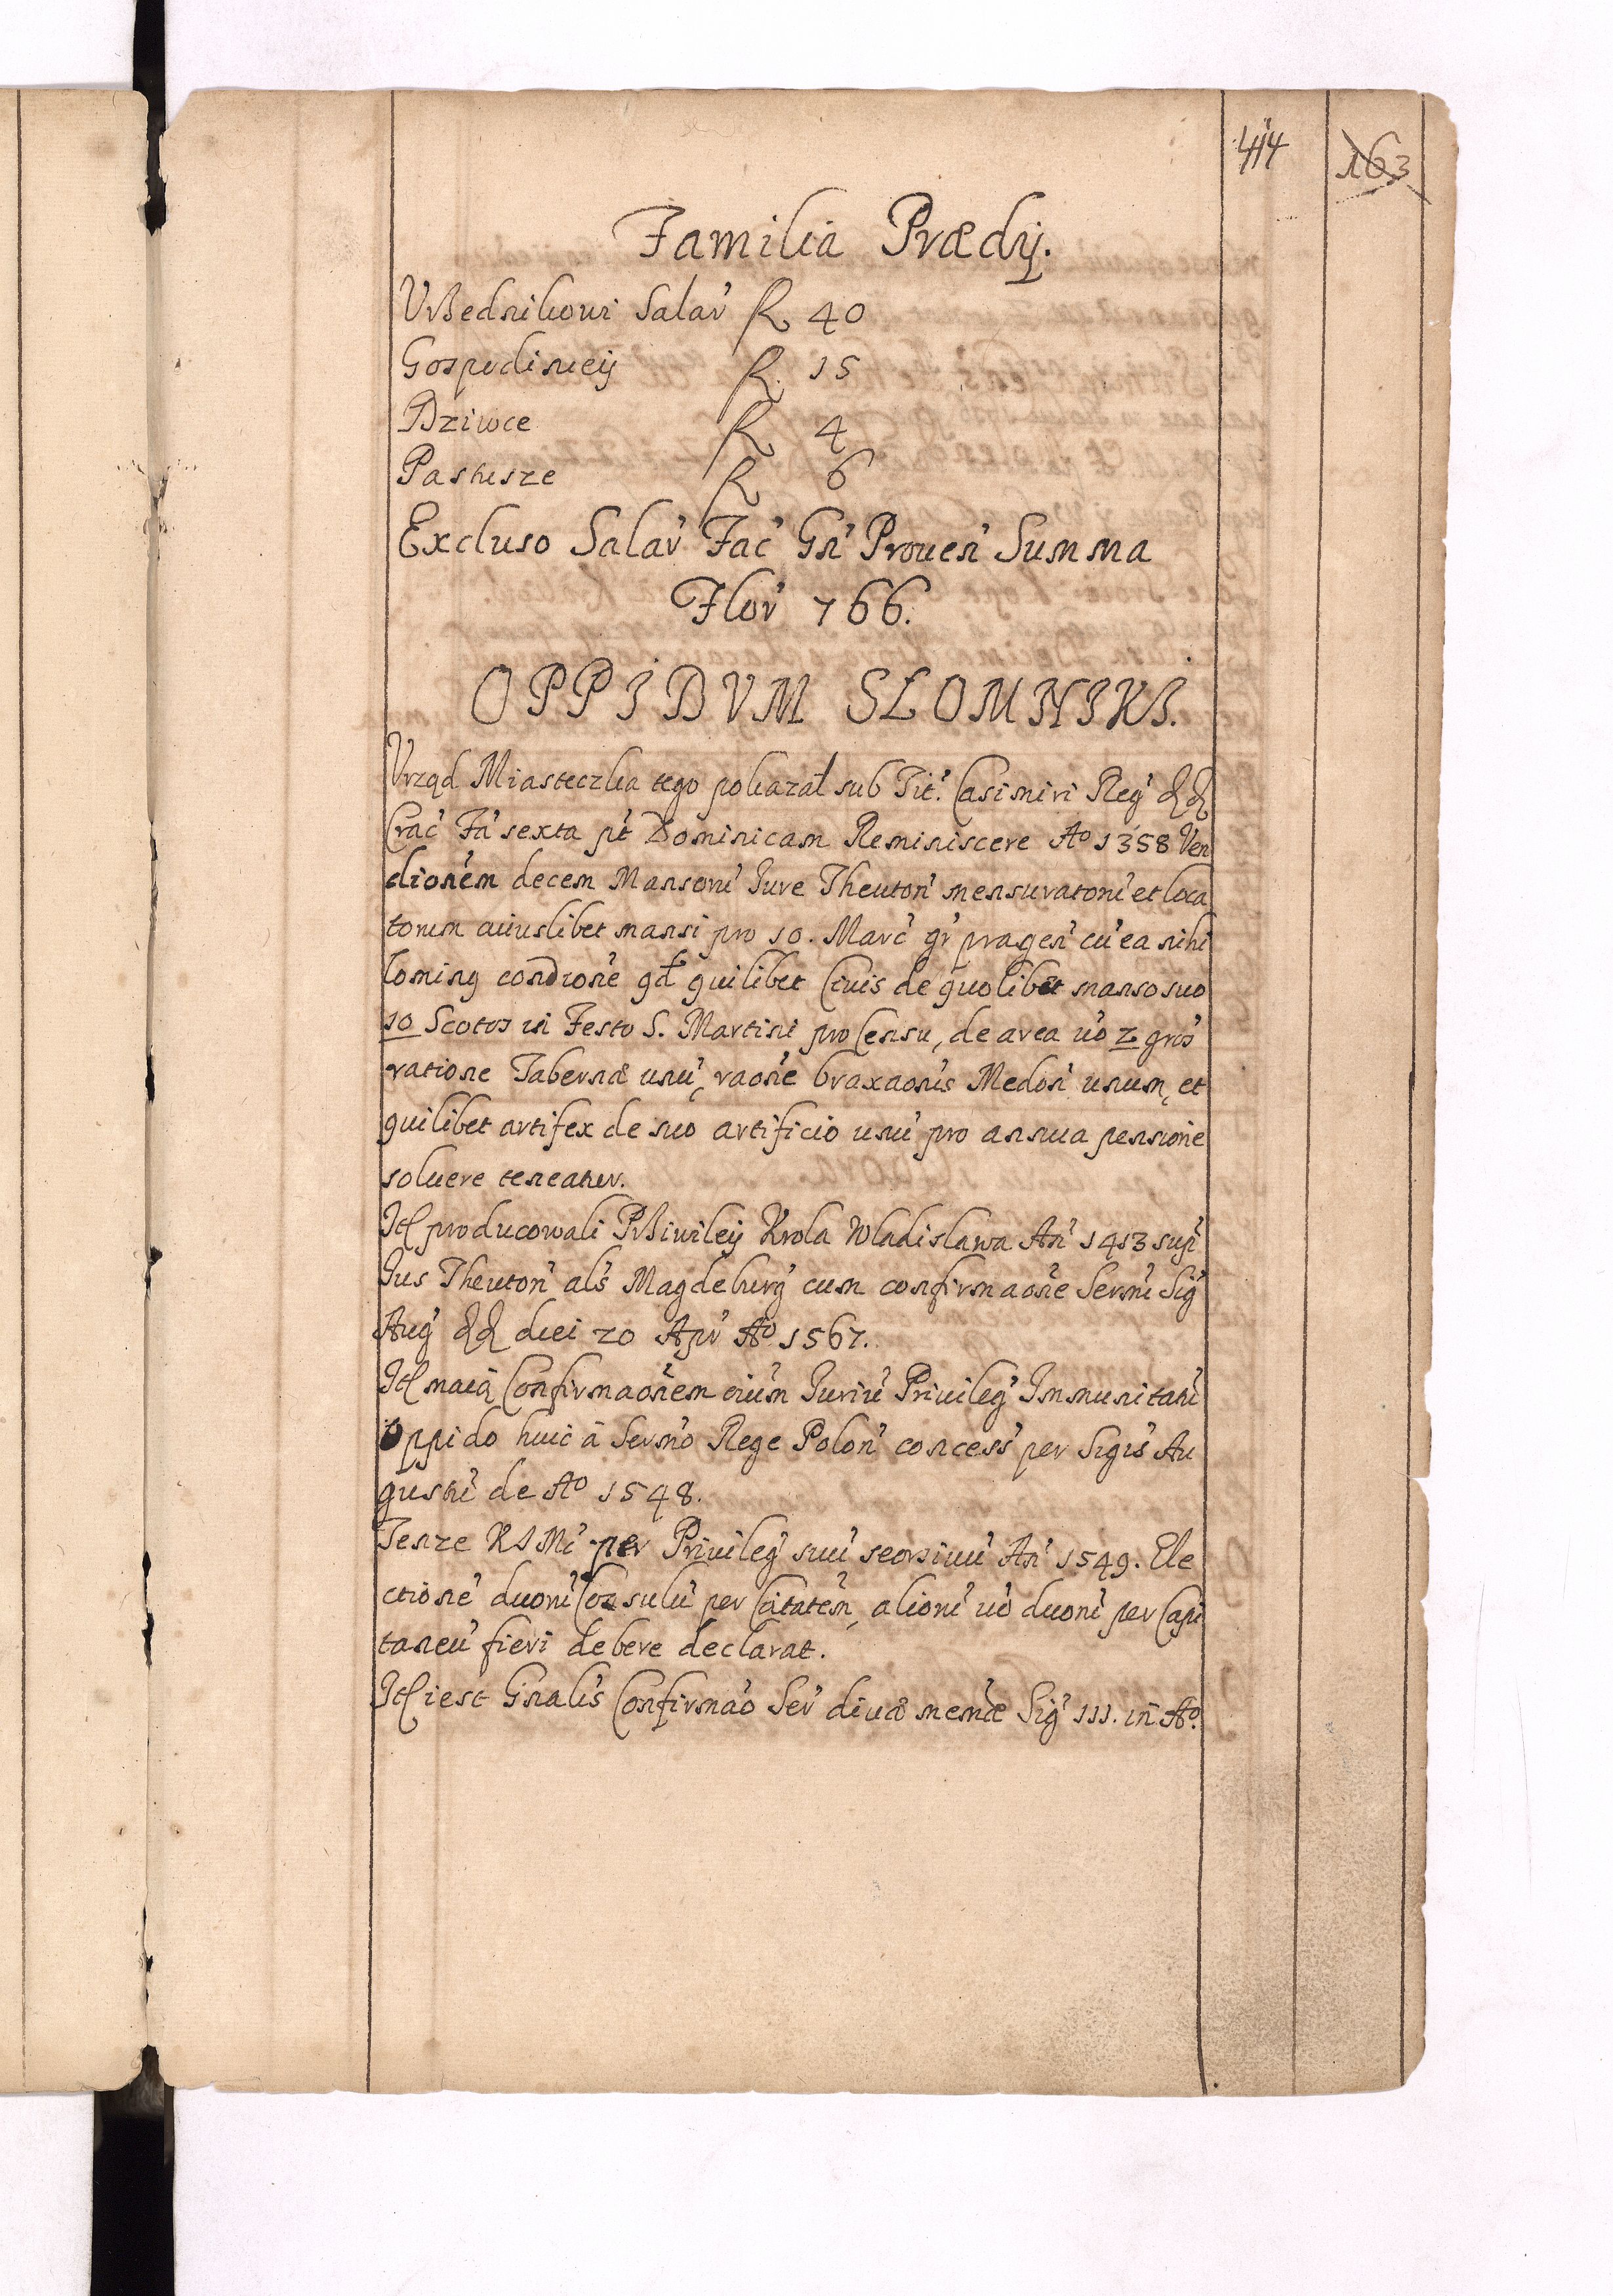 414
163
Familia Prædij.
Vrzednikowi Salar̉ fl 40
Gospodiniey fl. 15
Dziwce fl 4
Pastusze fl 6
Excluso Salar̉ Fac̉ Gn̉ Prouen̉ Summa
Flor̉ 766.
OPPIDVM SLOMNIKI.
Vrząd Miasteczka tego pokazał sub Tit. Casimiri Reg̉ &&
Crac̉ Fa̓ sexta pt̉ Dominicam Reminiscere Aº 1358 Ven
dionem decem Mansoru̓ Iure Theuton̉ mensuratoru̓ et loca
torum cuiuslibet mansi pro 10. Marc̉ gr̉ pragen̉ cu̓ ea nihi
lominq condrone qd quilibet Ciuis de quolibet manso suo
10 Scotos in Festo S. Martini pro Censu, de area uo̓ 2 gros̉
ratione Tabernæ unu̓, raone̓ braxaonis Medon̉ unum, et
quilibet artifex de suo artificio unu̓ pro annua pensione
soluere teneatur.
Itl producowali Przywiley Krola Wladislawa An̉ 1413 sup̉
Ius Theuton̉ als̉ Magdeburg̉ cum confirmaone̓ Sermi̓ Sig̉
Aug̉ && diei 20 Apr̉ Aº 1567.
Itl maią Confirmaonem oium Iuriu̓ Priuileg̉ Immunitatu̓
Oppido huic a Sermo̓ Rege Polon̉ concess̉ per Sigis̉ Au
gustu̓ de Aº 1548.
Tenze K I Mc̉ per Priuileg̉ suu̓ seorsiuu̓ An̉ 1549. Ele
ctione̓ duoru̓ Consulu̓ per Citatem, alioru̓ uo̓ duoru̓ per Capi
taneu̓ fieri debere declarat.
Itl iest Gnalis̉ Confirmao̓ Ser̉ diuæ memæ Sig̉ III. in Aº.